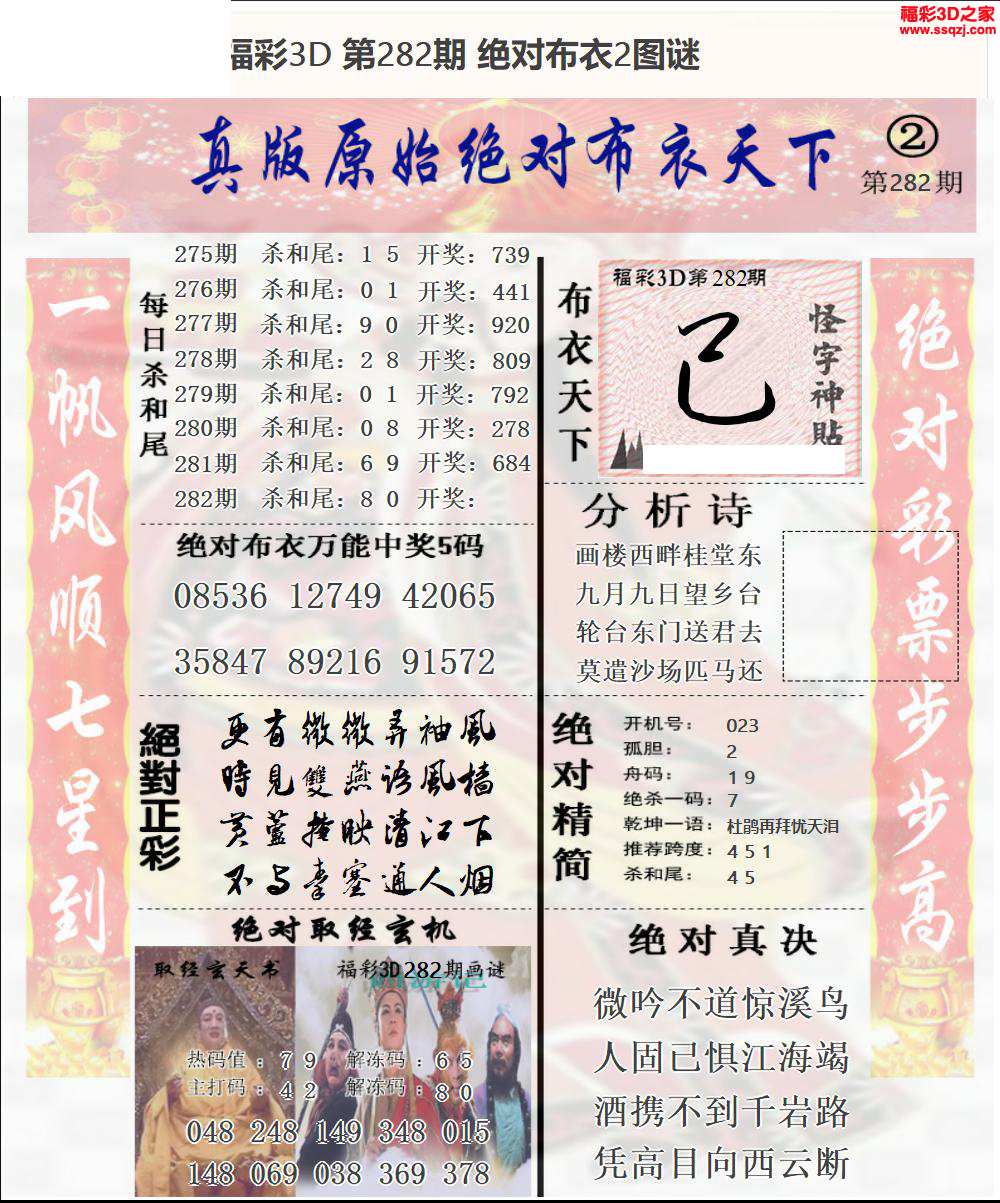 福彩3D之家
www.ssqzj.com
福彩3D 第282期 绝对布衣2图谜
真版原始绝对布衣天下
②
第282期
一帆风顺七星到
每日杀和尾
275期 杀和尾：1 5 开奖：739
276期 杀和尾：0 1 开奖：441
277期 杀和尾：9 0 开奖：920
278期 杀和尾：2 8 开奖：809
279期 杀和尾：0 1 开奖：792
280期 杀和尾：0 8 开奖：278
281期 杀和尾：6 9 开奖：684
282期 杀和尾：8 0 开奖：
绝对布衣万能中奖5码
08536 12749 42065
35847 89216 91572
絕對正彩
更有微微弄袖風
時見雙燕语風樯
芙蓉掩映清江下
不与李塞通人烟
绝对取经玄机
取经玄天书
福彩3D282期画谜
热码值：7 9 解冻码：6 5
主打码：4 2 解冻码：8 0
048 248 149 348 015
148 069 038 369 378
布衣天下
福彩3D第282期
己
怪字神貼
分析诗
画楼西畔桂堂东
九月九日望乡台
轮台东门送君去
莫遣沙场匹马还
绝对精简
开机号：023
孤胆：2
舟码：1 9
绝杀一码：7
乾坤一语：杜鹃再拜忧天泪
推荐跨度：4 5 1
杀和尾：4 5
绝对真决
微吟不道惊溪鸟
人固已惧江海竭
酒携不到千岩路
凭高目向西云断
绝对彩票步步高